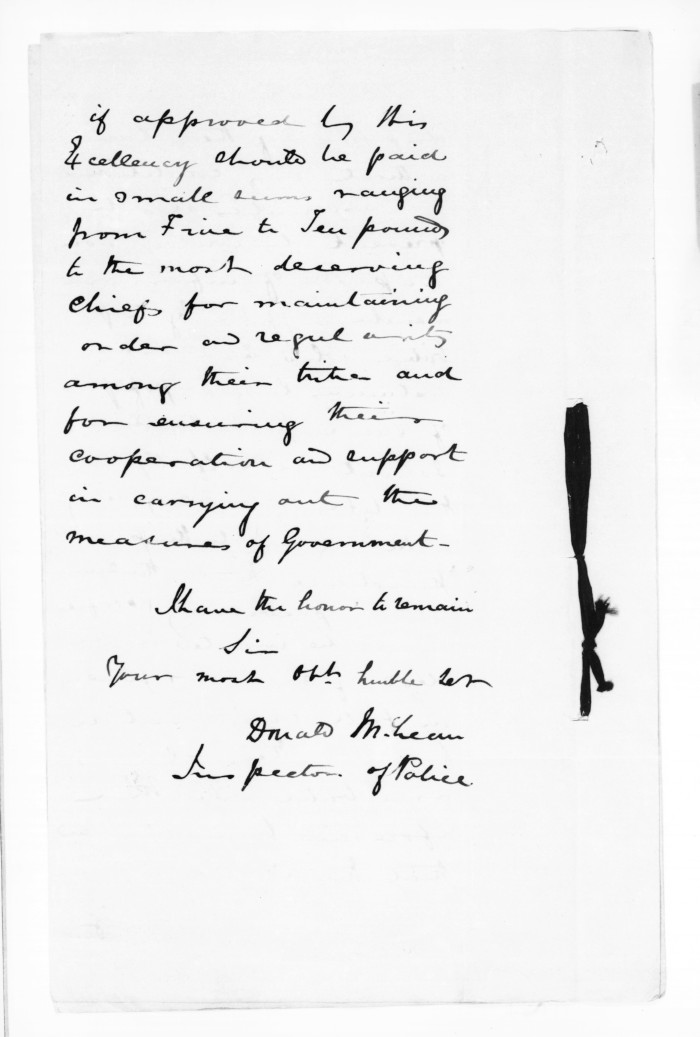 if approved by this
Excellency should be paid
in small sums ranging
from Five to Ten pounds
to the most deserving
chiefs for maintaining
order and regularity
among their tribe and
for ensuring their
cooperation and support
in carrying out the
measures of Government -
I have the honor to remain
Sir
Your most obt. humble sert
Donald McLean
Inspector of Police